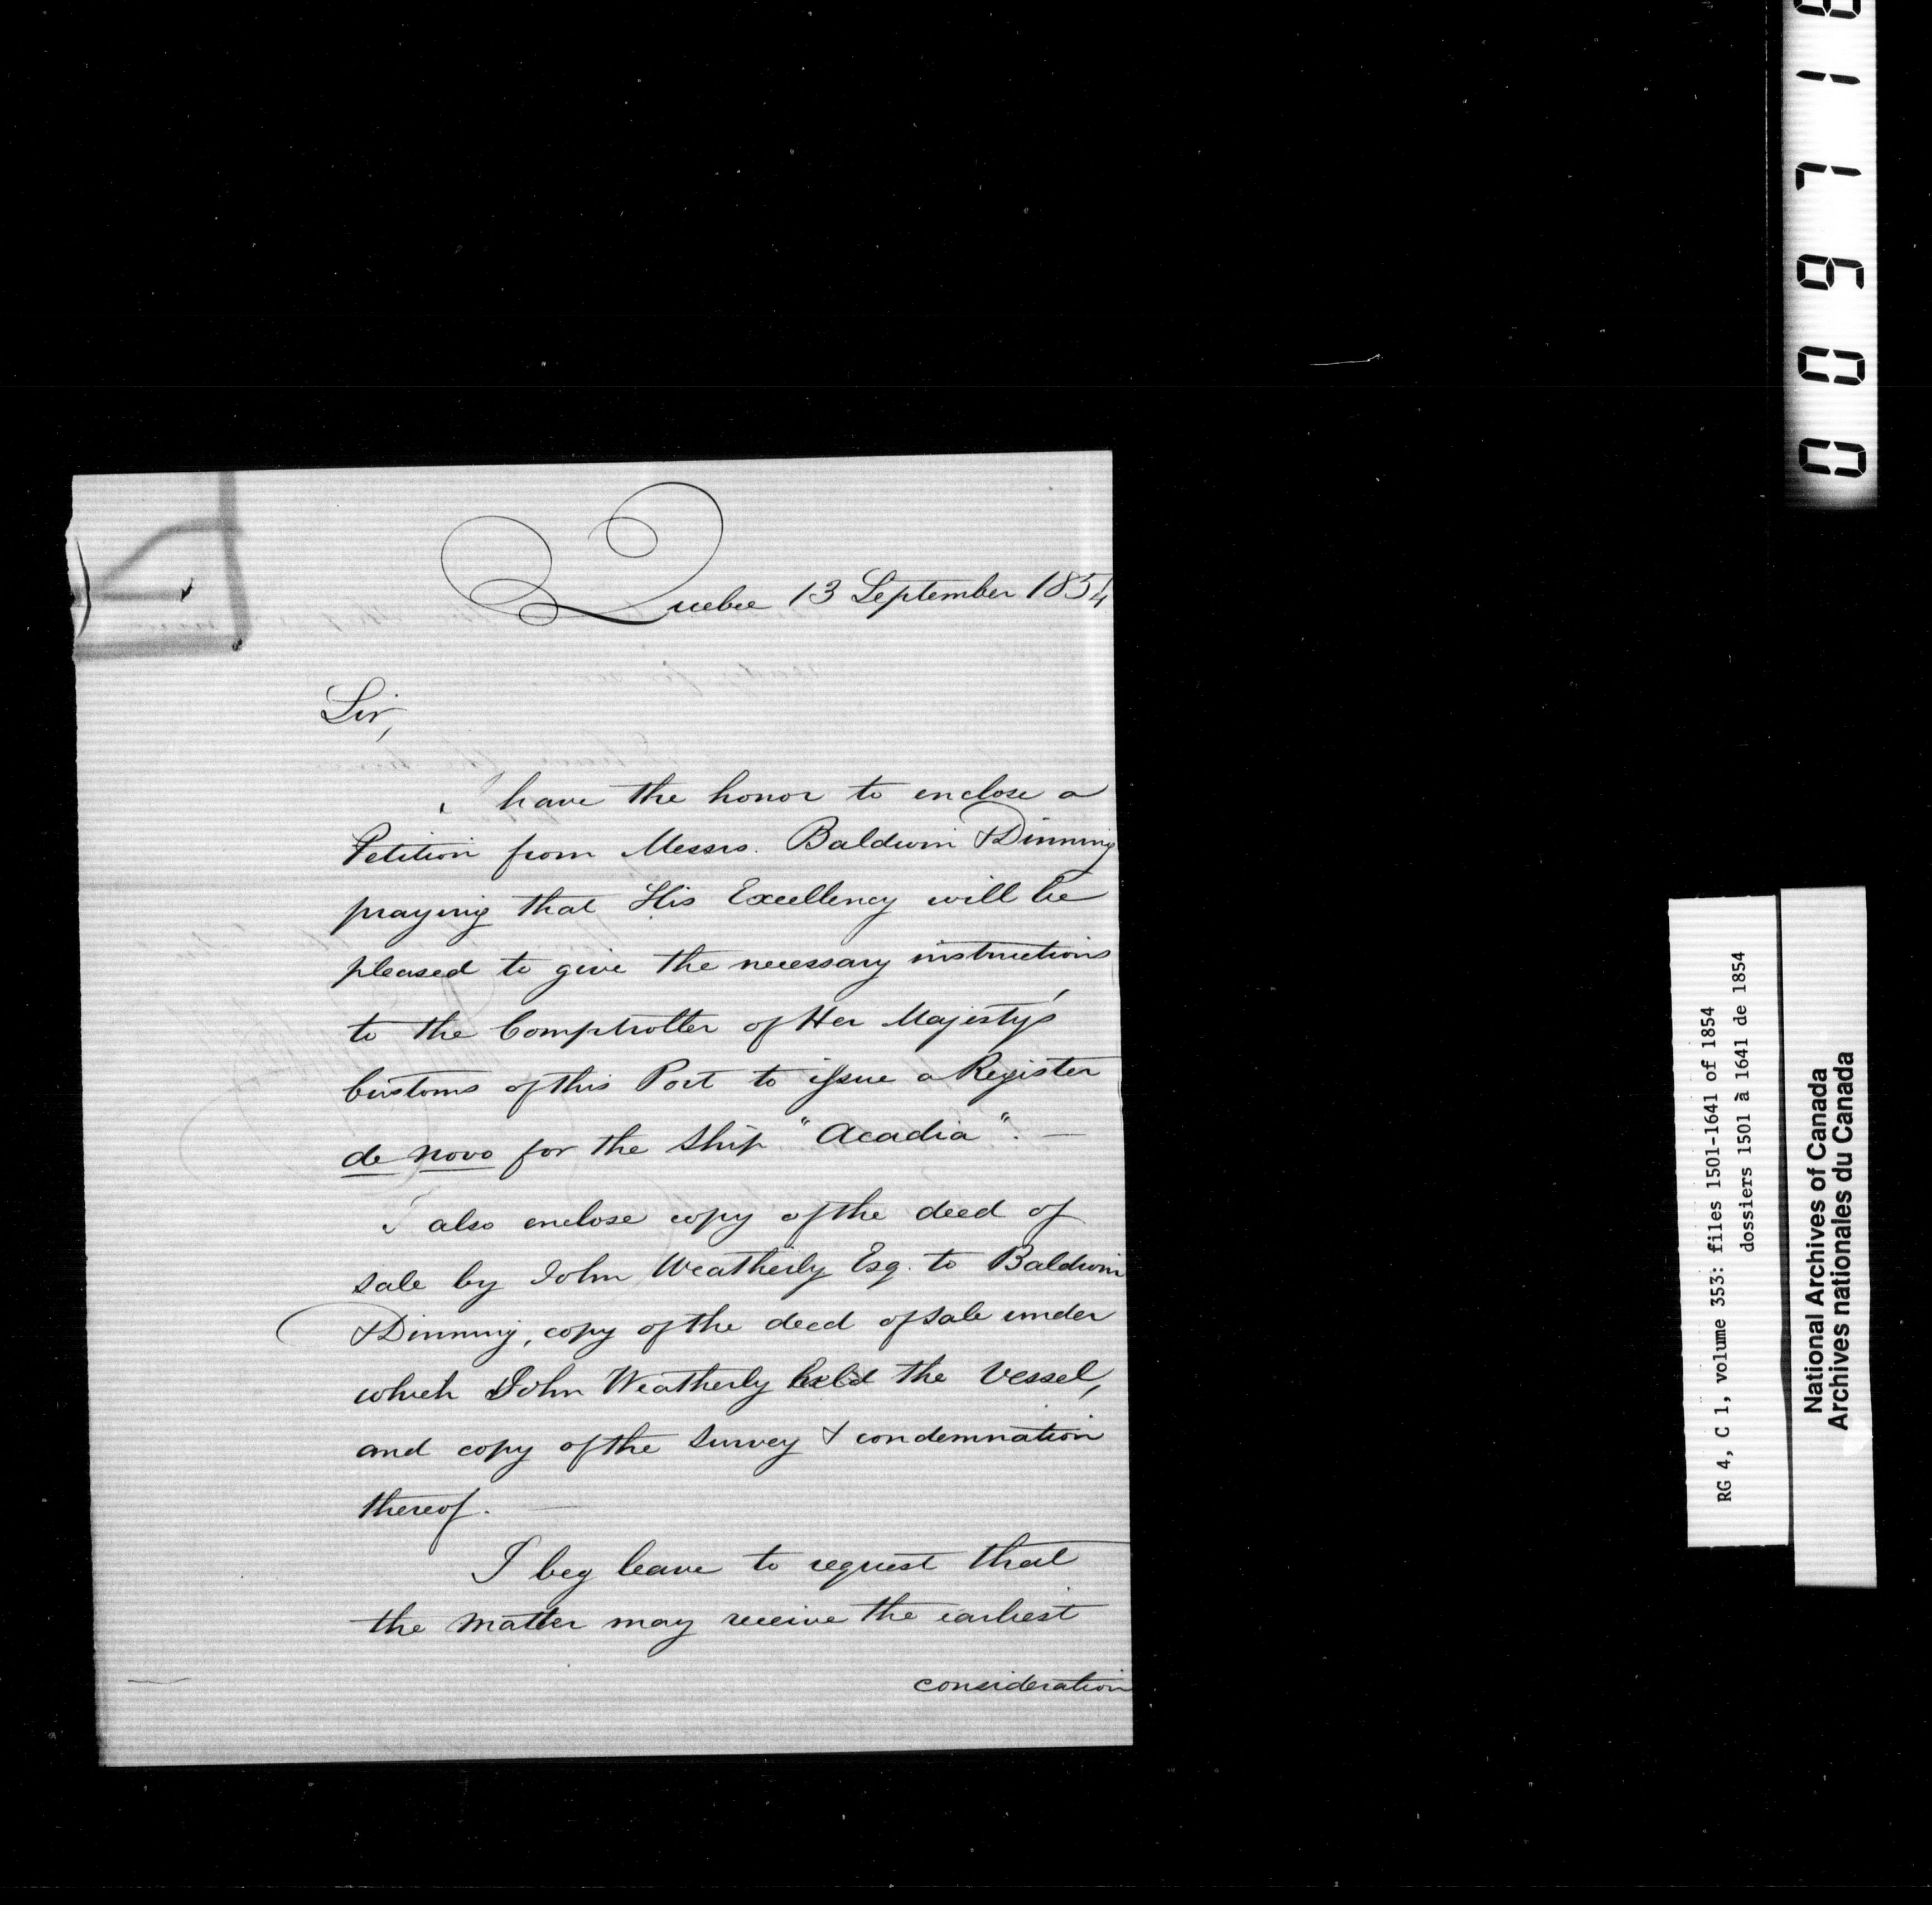 Quebec 13 September 1854
Sir,
I have the honor to enclose a
Petition from Messrs. Baldwin & Dinning
praying that His Excellency will be
pleased to give the necessary instructions
to the Comptroller of Her Majesty's
Customs of this Port to issue a Register
de novo for the Ship "Acadia". —
I also enclose copy of the deed of
sale by John Weatherly Esq. to Baldwin
& Dinning, copy of the deed of sale under
which John Weatherly held the Vessel,
and copy of the Survey & condemnation
thereof. —
I beg leave to request that
the matter may receive the earliest
consideration
RG 4, C 1, volume 353: files 1501-1641 of 1854
dossiers 1501 à 1641 de 1854
National Archives of Canada
Archives nationales du Canada